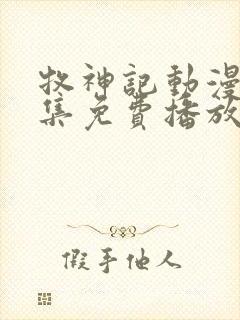 牧神記動漫
集免費播放
假手他人